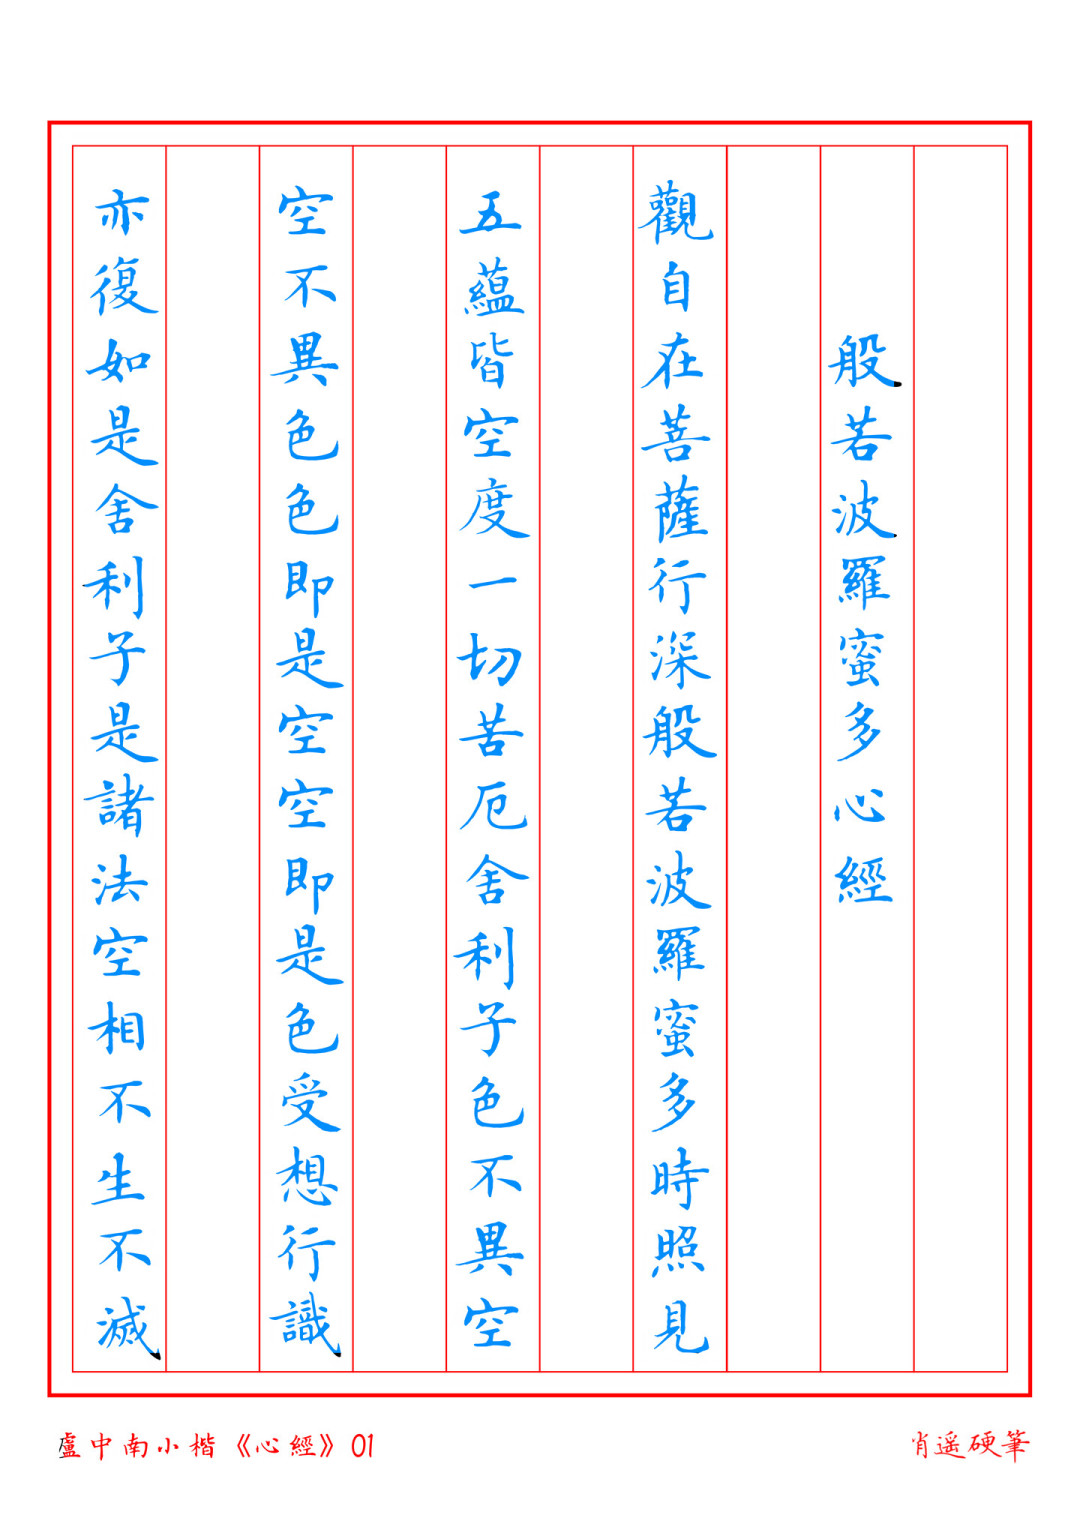 般若波羅蜜多心經
觀自在菩薩行深般若波羅蜜多時照見
五蘊皆空度一切苦厄舍利子色不異空
空不異色色即是空空即是色受想行識
亦復如是舍利子是諸法空相不生不滅
盧中南小楷《心經》01
肖遥硬筆